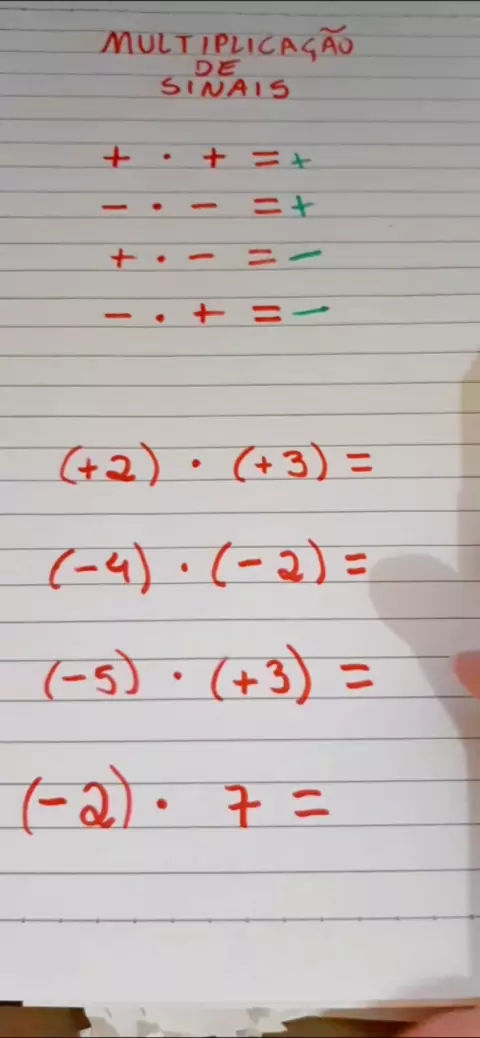 MULTIPLICAÇÃO
DE
SINAIS
+ . + = +
- . - = +
+ . - = -
- . + = -
(+2) . (+3) =
(-4) . (-2) =
(-5) . (+3) =
(-2) . 7 =